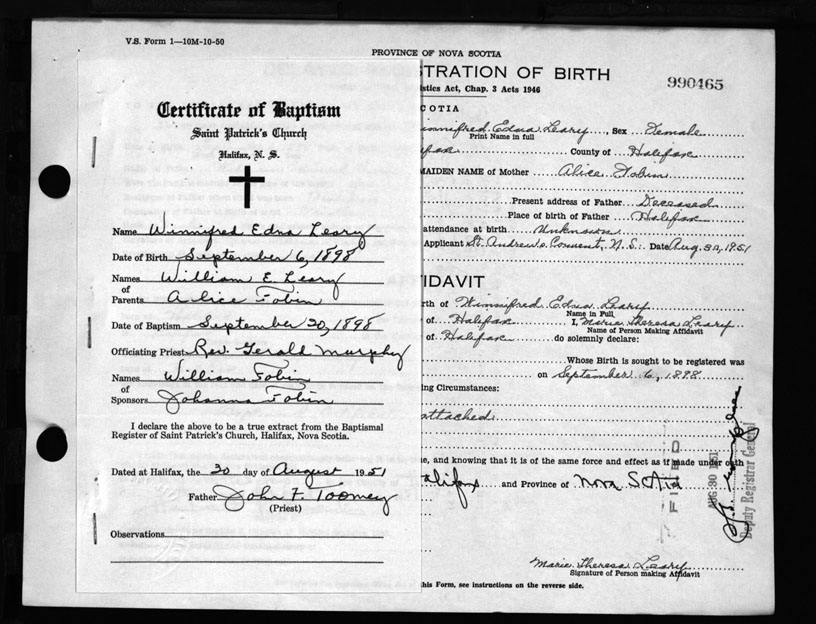 V.S. Form 1—10M-10-50
PROVINCE OF NOVA SCOTIA
TRATION OF BIRTH
990465
istics Act, Chap. 3 Acts 1946
COTIA
Certificate of Baptism
Saint Patrick's Church
Halifax, N. S.
Name Winnifred Edna Leary
Date of Birth September 6, 1898
Names William E. Leary
of
Parents Alice Tobin
Date of Baptism September 20, 1898
Officiating Priest Rev. Gerald Murphy
Names William Tobin
of
Sponsors Johanna Tobin
I declare the above to be a true extract from the Baptismal
Register of Saint Patrick's Church, Halifax, Nova Scotia.
Dated at Halifax, the 30 day of August 1951
Father John F. Toomey
(Priest)
Observations
innifred Edna Leary, Sex Female
Print Name in full
ifax County of Halifax
MAIDEN NAME of Mother Alice Tobin
Present address of Father Deceased
Place of birth of Father Halifax
attendance at birth Unknown
Applicant St. Andrew's Convent, N.S.: Date Aug. 30, 1951
FIDAVIT
rth of Winnifred Edna Leary
Name in Full
of Halifax I, Marie Theresa Leary
Name of Person Making Affidavit
of Halifax do solemnly declare:
Whose Birth is sought to be registered was
on September 6, 1898
ing Circumstances:
attached
e, and knowing that it is of the same force and effect as if made under oath
alifax and Province of Nova Scotia
FILED
AUG 30 1951
Deputy Registrar General
Marie Theresa Leary
Signature of Person making Affidavit
this Form, see instructions on the reverse side.